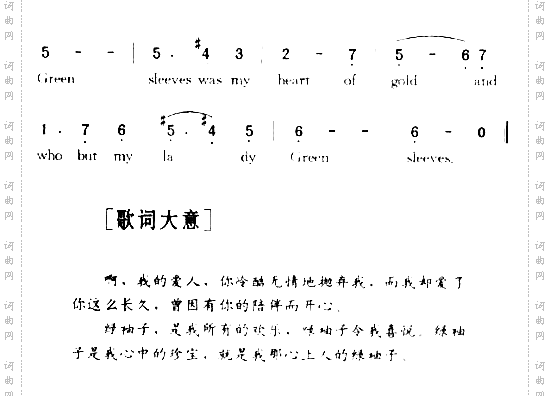 5 - - | 5 . #4 3 | 2 - 7 | 5 - 6 7
Green sleeves was my heart of gold and
1 . 7 6 | #5 . #4 5 | 6 - - | 6 - 0
who but my la dy Green sleeves.
[歌词大意]
啊，我的爱人，你冷酷无情地抛弃我，而我却爱了
你这么长久，曾因有你的陪伴而开心。
绿袖子，是我所有的欢乐，绿袖子令我喜悦。绿袖
子是我心中的珍宝，就是我那心上人的绿袖子。
词曲网
词曲网
词曲网
词曲网
词曲网
词曲网